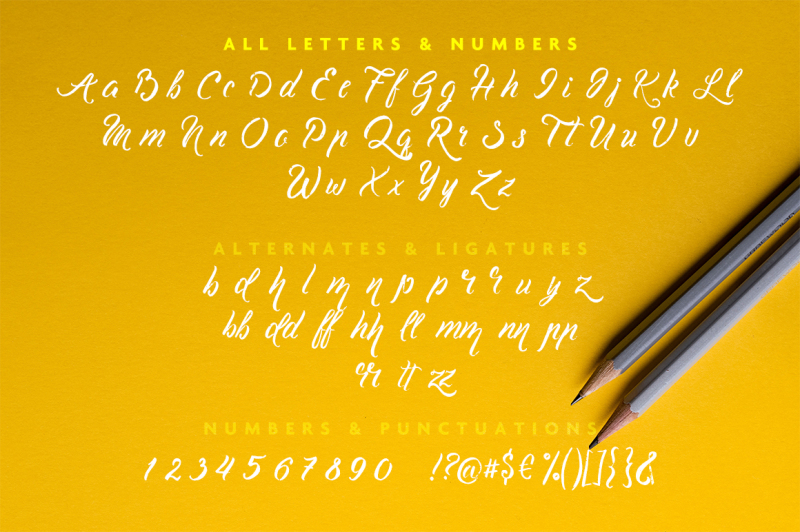 ALL LETTERS & NUMBERS
Aa Bb Cc Dd Ee Ff Gg Hh Ii Jj Kk Ll
Mm Nn Oo Pp Qq Rr Ss Tt Uu Vv
Ww Xx Yy Zz
ALTERNATES & LIGATURES
b d h l m n p p r r u y z
bb dd ff hh ll mm nn pp
rr tt zz
NUMBERS & PUNCTUATIONS
1 2 3 4 5 6 7 8 9 0 !?@#$€%()[]{}&